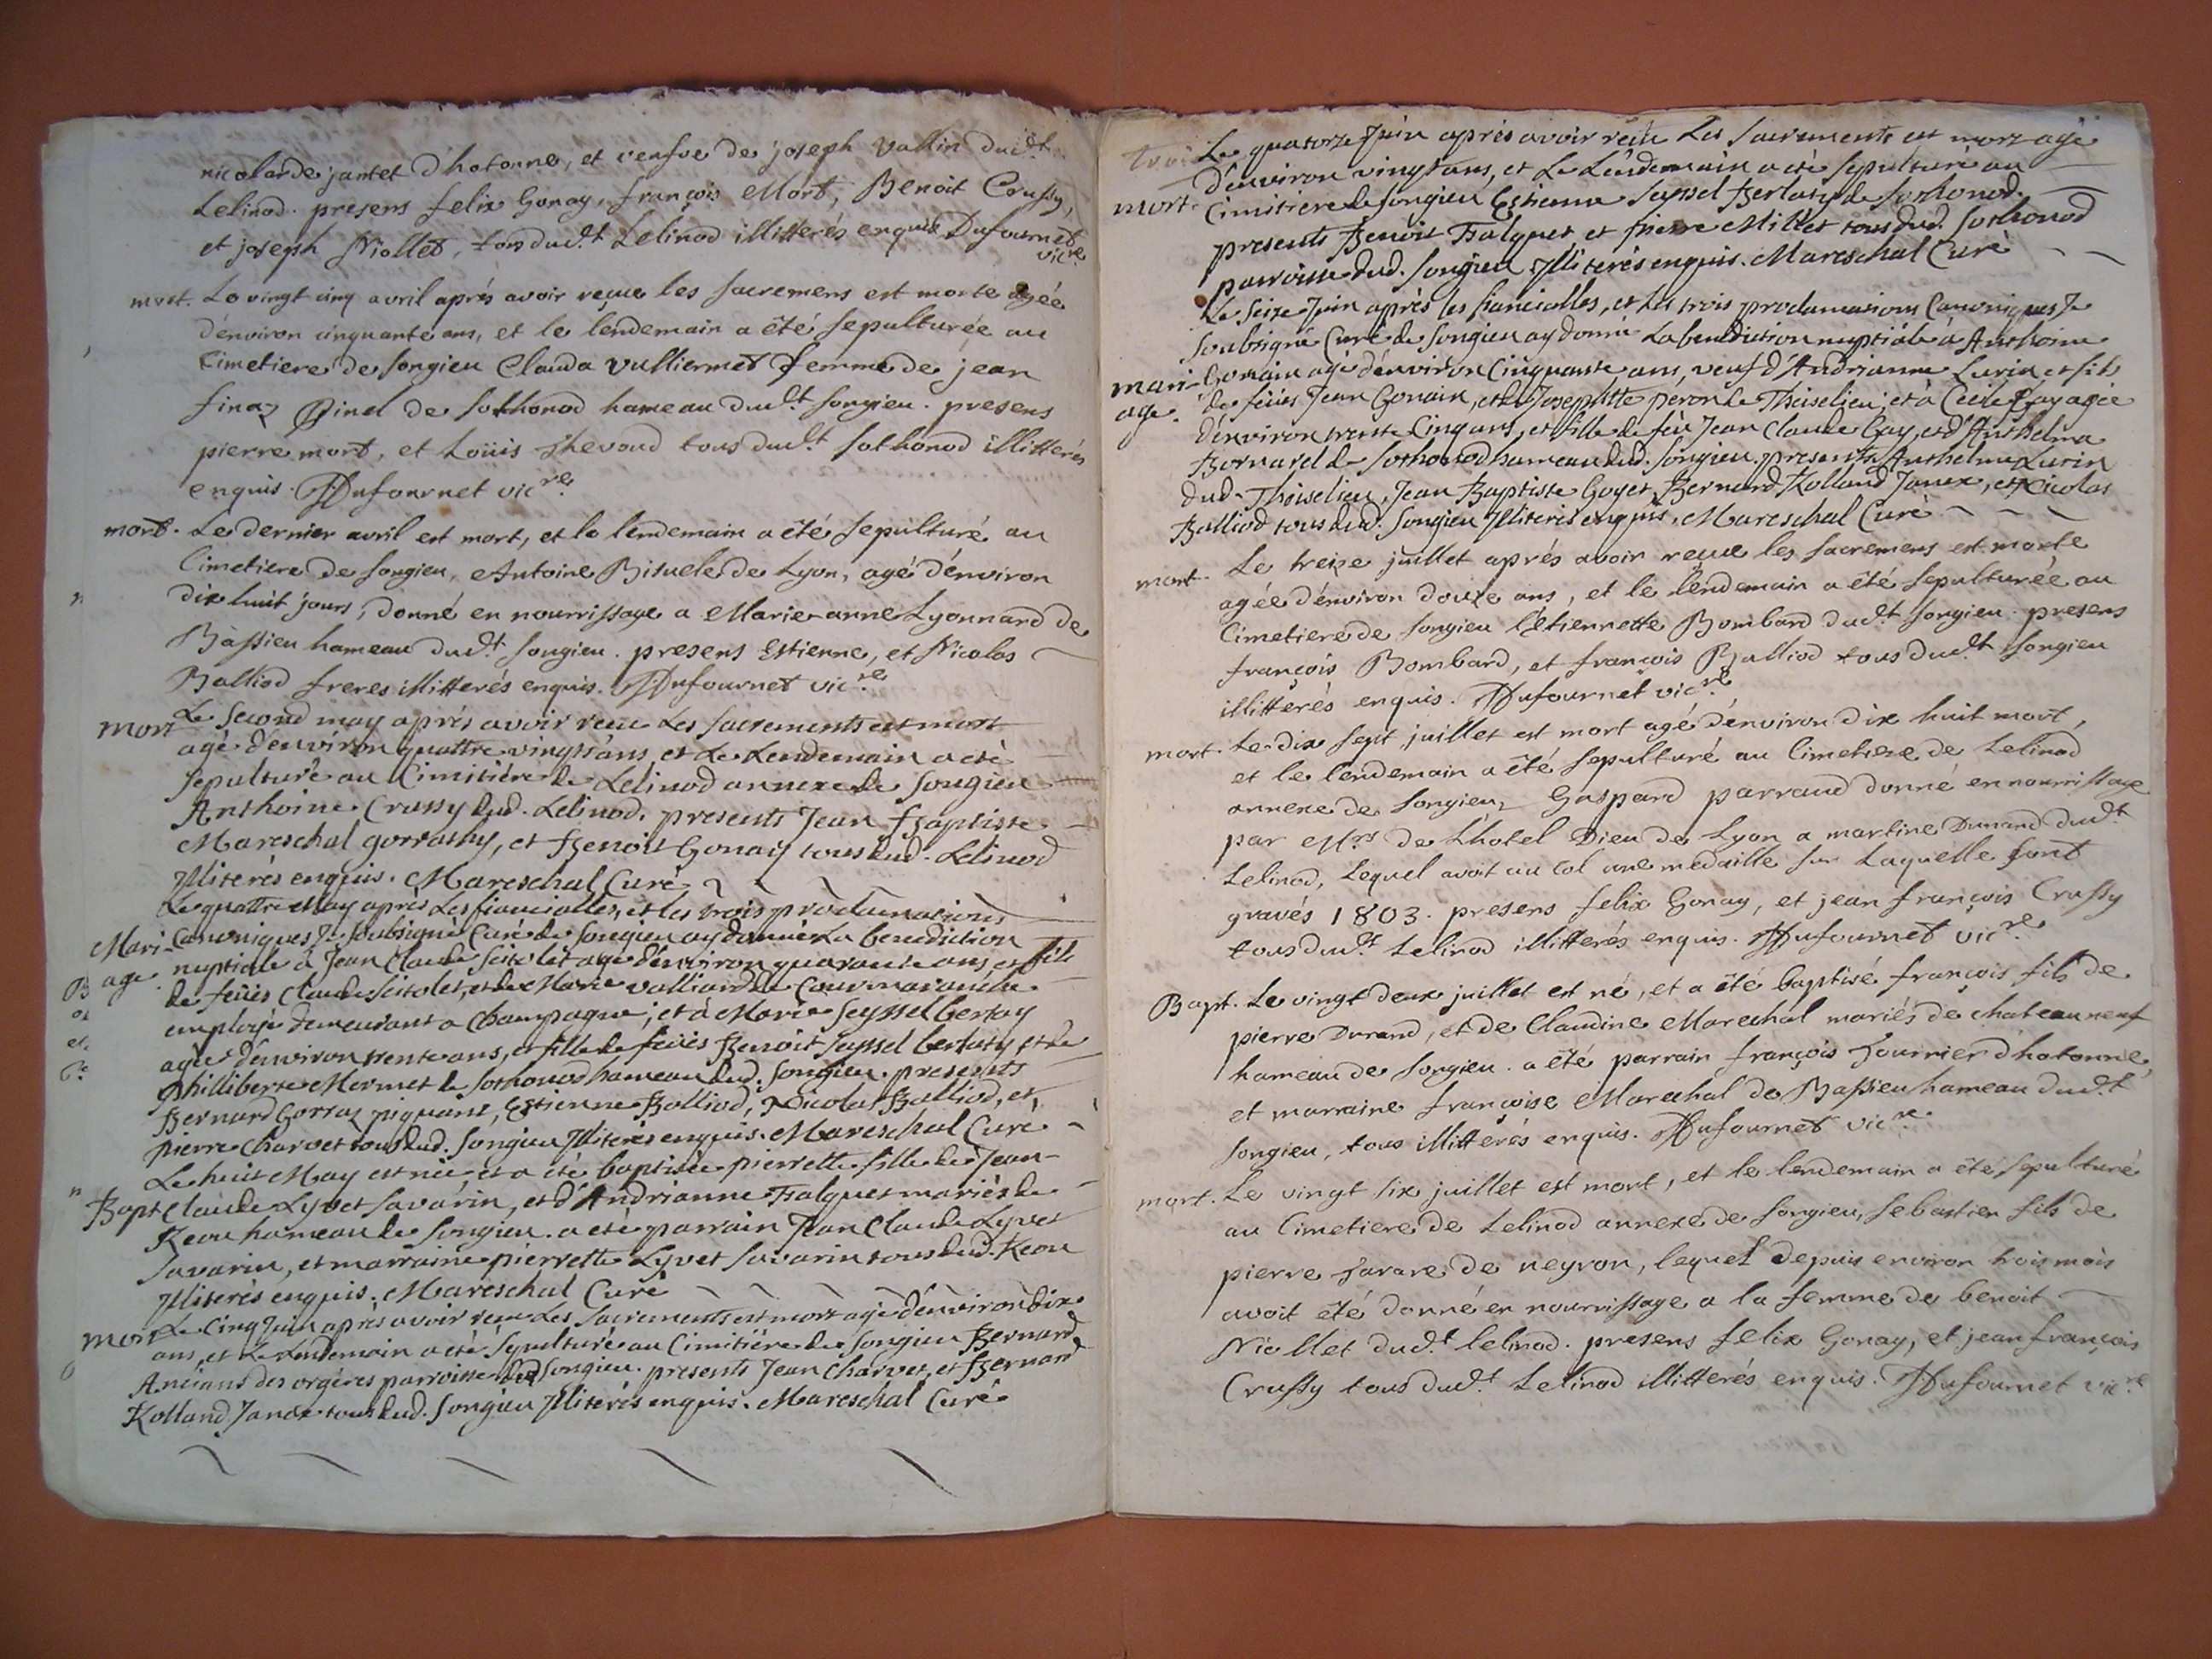 nicolarde jantet d'hotonne, et veufve de joseph Vallin dud.t
Lelinod. presens felix Gonay, françois Mort, Benoit Crussy,
et joseph Niollet, tous dud.t Lelinod illitterés enquis Dufournet
vic.re
mort. Le vingt cinq avril aprés avoir reçue les sacremens est morte agée
d'énviron cinquante ans, et le lendemain a été sepulturée au
Cimetiere de songieu Clauda Vulliermet femme de jean
finaz Pinel de sothonod hameau dud.t songieu. presens
pierre mort, et Loüis Thevoud tous dud.t sothonod illitterés
enquis. Dufournet vic.re
mort. Le dernier avril est mort, et le lendemain a été sepulturé au
Cimetiere de songieu, Antoine de Lyon, agé d'énviron
dix huit jours, donné en nourrissage a Marie-anne Lyonnard de
Bassieu hameau dud.t songieu. presens Estienne, et Nicolas
Balliod freres illitterés enquis. Dufournet vic.re
mort Le second may aprés avoir reçu Les sacrements est mort
agé d'énviron quattre vingts ans, et Le Lendemain a eté
sepulturé au Cimitiére de Lelinod annexe de songieu
Anthoine Crussy dud. Lelinod, presents Jean Baptiste
Mareschal gorrathy, et Benoit Gonay tous dud. Lelinod
Jlliterés enquis. Mareschal Curé
Le quattre May aprés Les fianciailles, et les trois proclamations
Mari- Canoniques Je soubsigné Curé de songieu ay donné La benediction
age. nuptiale a Jean Claude agé d'énviron quarante ans et fils
de feües Claude et de Marie Valliard de Courmaranche
employé demeurant a Champagne, et à Marie Seyssel bertay
agée d'énviron trente ans, et fille de feües Benoit Seyssel bertaty et de
Philliberte Mermet de sothonod hameau dud. songieu. presents
Bernard Gorraz piquant, Estienne Balliod, Nicolas Balliod, et
pierre Charvet tous dud. songieu Jlliterés enquis. Mareschal Curé
Le huit May est née, et a eté baptisée pierrette fille de Jean
Bapt Claude Lyvet savarin, et d'Andrianne Falquet mariés de
Reou hameau de songieu. a eté parrain Jean Claude Lyvet
savarin, et marraine pierrette Lyvet savarin tous dud. Reou
Jlliterés enquis. Mareschal Curé
mort Le Cinq Juin aprés avoir reçu Les sacrements est mort agé d'énviron dix
ans, et Le Lendemain a eté sepulturé au Cimitiére de songieu Bernard
Ancians des orgéres parroisse dud songieu. presents Jean Charvet, et Bernard
Rolland Janex tous dud. songieu Jlliterés enquis. Mareschal Curé
Le quatorze Juin aprés avoir reçu Les sacrements est mort agé
d'énviron vingt ans, et Le Lendemain a eté sepulturé au
mort. Cimitiere de songieu Estienne Seyssel Bertaty de sothonod.
presents Benoit Falquet et pierre Millet tous dud. sothonod
parroisse dud. songieu Jlliterés enquis. Mareschal Curé
Le seize Juin aprés les fianciailles, et les trois proclamations Canoniques Je
soubsigné Curé de songieu ay donné La benediction nuptiale à Anthoine
mari- Gonain agé d'énviron Cinquante ans, veuf d'Andrianne Lurin et fils
age. de feües Jean Gonain, et de Josephtte peron de Thoiselieu, et à Cecile Gay agée
d'énviron trente Cinq ans, et fille de feu Jean Claude Gay, et d'Anthelma
Bornarel de sothonod hameau dud. songieu. presents Anthelme Lurin
dud. Thoiselieu, Jean Baptiste Goyet Bernard Rolland Janex, et Nicolas
Balliod tous dud. songieu Jlliterés enquis. Mareschal Curé
mort. Le treize juillet aprés avoir reçue les sacremens est morte
agée d'énviron douze ans, et le lendemain a été sepulturée au
Cimetiere de songieu Etiennette Bombard dud.t songieu. presens
françois Bombard, et françois Balliod tous dud.t songieu
illitterés enquis. Dufournet vic.re
mort. Le dix sept juillet est mort agé d'énviron dix huit mort,
et le lendemain a été sepulturé au Cimetiere de Lelinod
annexe de songieu, Gaspard parraud donné en nourrissage
par M.rs de L'hotel Dieu de Lyon a martine Durand dud.t
Lelinod, Lequel avoit au Col une medaille sur Laquelle sont
gravés 1803. presens felix Gonay, et jean françois Crussy
tous dud.t Lelinod illitterés enquis. Dufournet vic.re
Bapt. Le vingt deux juillet est né, et a été baptisé françois fils de
pierre Durand, et de Claudine Marechal mariés de chateauneuf
hameau de songieu. a été parrain françois fournier d'hotonne,
et marraine françoise Marechal de Bassieu hameau dud.t
songieu, tous illitterés enquis. Dufournet vic.re
mort. Le vingt six juillet est mort, et le lendemain a été sepulturé
au Cimetiere de Lelinod annexe de songieu, sebastien fils de
pierre de neyron, lequel depuis environ trois mois
avoit été donné en nourrissage a la femme de benoit
Niollet dud.t lelinod. presens felix Gonay, et jean françois
Crussy tous dud.t Lelinod illitterés enquis. Dufournet vic.re